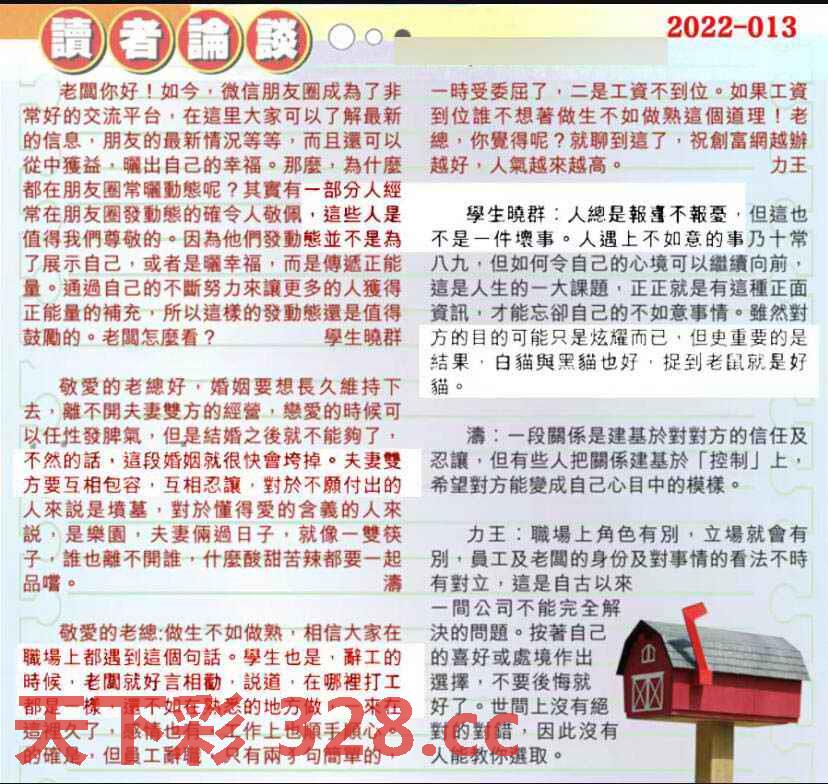 讀者論談
2022-013
老闆你好！如今，微信朋友圈成為了非
常好的交流平台，在這里大家可以了解最新
的信息，朋友的最新情況等等，而且還可以
從中獲益，曬出自己的幸福。那麼，為什麼
都在朋友圈常曬動態呢？其實有一部分人經
常在朋友圈發動態的確令人敬佩，這些人是
值得我們尊敬的。因為他們發動態並不是為
了展示自己，或者是曬幸福，而是傳遞正能
量。通過自己的不斷努力來讓更多的人獲得
正能量的補充，所以這樣的發動態還是值得
鼓勵的。老闆怎麼看？ 學生曉群
敬愛的老總好，婚姻要想長久維持下
去，離不開夫妻雙方的經營，戀愛的時候可
以任性發脾氣，但是結婚之後就不能夠了，
不然的話，這段婚姻就很快會垮掉。夫妻雙
方要互相包容，互相忍讓，對於不願付出的
人來説是墳墓，對於懂得愛的含義的人來
説，是樂園，夫妻倆過日子，就像一雙筷
子，誰也離不開誰，什麼酸甜苦辣都要一起
品嚐。 濤
敬愛的老總:做生不如做熟，相信大家在
職場上都遇到這個句話。學生也是，辭工的
時候，老闆就好言相勸，説道，在哪裡打工
都是一樣，還不如在熟悉的地方做，一來在
這裡久了，感情也有，工作上也順手順心。
的確是，但員工辭職，只有兩才句簡單的
一時受委屈了，二是工資不到位。如果工資
到位誰不想著做生不如做熟這個道理！老
總，你覺得呢？就聊到這了，祝創富網越辦
越好，人氣越來越高。 力王
學生曉群：人總是報喜不報憂，但這也
不是一件壞事。人遇上不如意的事乃十常
八九，但如何令自己的心境可以繼續向前，
這是人生的一大課題，正正就是有這種正面
資訊，才能忘卻自己的不如意事情。雖然對
方的目的可能只是炫耀而已，但更重要的是
結果，白貓與黑貓也好，捉到老鼠就是好
貓。
濤：一段關係是建基於對對方的信任及
忍讓，但有些人把關係建基於「控制」上，
希望對方能變成自己心目中的模樣。
力王：職場上角色有別，立場就會有
別，員工及老闆的身份及對事情的看法不時
有對立，這是自古以來
一間公司不能完全解
決的問題。按著自己
的喜好或處境作出
選擇，不要後悔就
好了。世間上沒有絕
對的對錯，因此沒有
人能教你選取。
天下彩 1328.cc